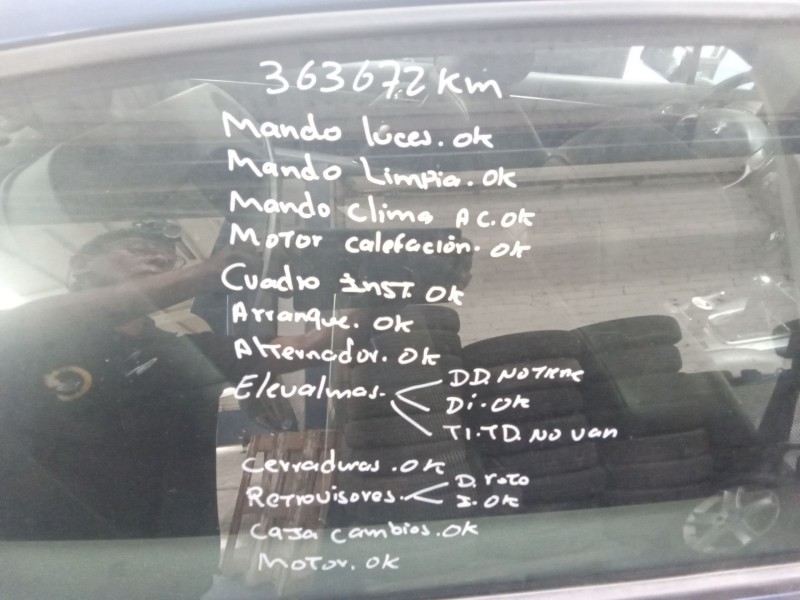 363672 Km
Mando luces. OK
Mando Limpia. OK
Mando clima A C. OK
Motor calefación. OK
Cuadro INST. OK
Arranque. OK
Alternador. OK
DD. NO TIENE
Elevalmas.
Di. OK
TI. TD. NO van
Cerraduras. OK
D. roto
Retrovisores.
I. OK
Caja cambios. OK
Motor. OK